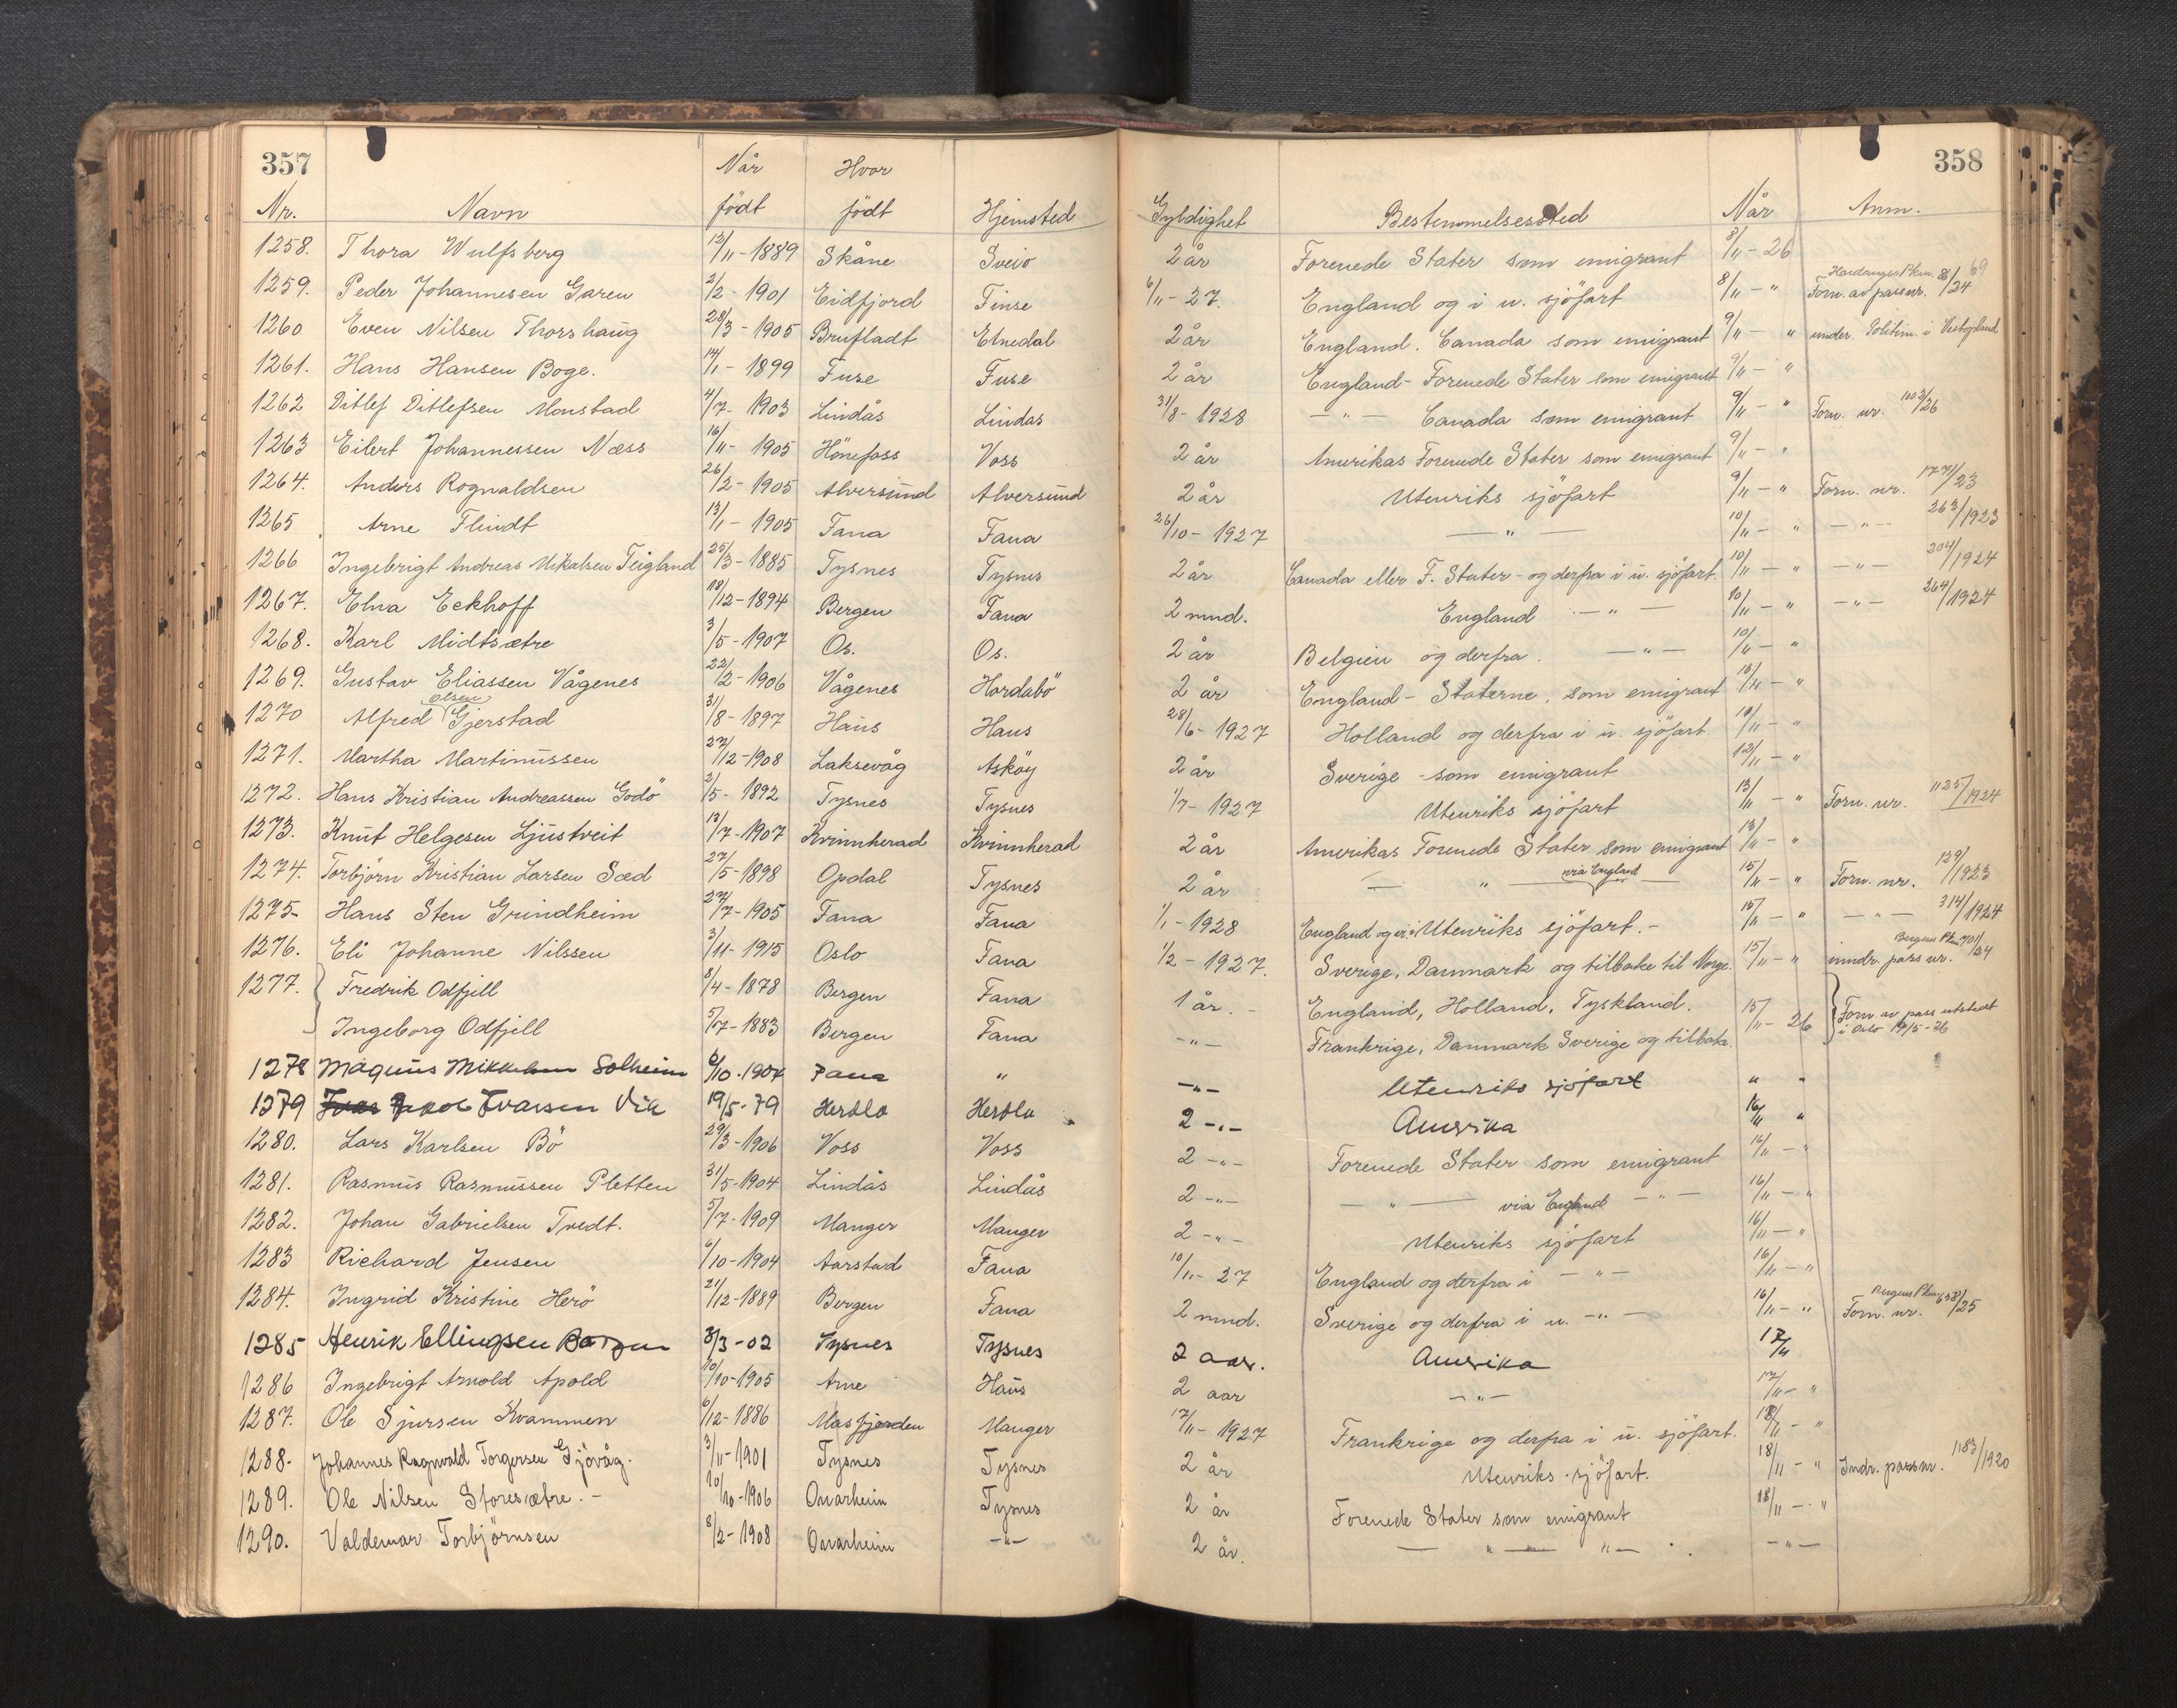 357
358
Nr. Navn Når födt Hvor födt Hjemsted Gyldighet Bestemmelsessted Når Anm.
1258. Thora Wulfsberg 12/11-1889 Skåne Sveio 2 år Forenede Stater som emigrant 8/11-26
1259. Peder Johannesen Garen 2/2-1901 Eidfjord Finse 6/11-27. England og i u. sjöfart 8/11-" Forn. av passnr. 86/24 69
1260 Even Nilsen Thorshaug 28/3-1905 Brufladt Etnedal 2 år England. Canada som emigrant 9/11-" under Politim. i Vestopland
1261. Hans Hansen Boge. 14/1-1899 Fuse Fuse 2 år England-Forenede Stater som emigrant 9/11-"
1262 Ditlef Ditlefsen Monstad 4/7-1903 Lindås Lindas 31/8-1928 -"- Canada som emigrant 9/11-" Forn. nr. 1103/26
1263 Eilert Johannessen Næss 16/11-1905 Hönefoss Voss 2 år Amerikas Forenede Stater som emigrant 9/11-"
1264. Anders Rognaldsen 26/2-1905 Alversund Alversund 2 år Utenriks sjöfart 9/11-" Forn. nr. 177/23
1265 Arne Flindt 13/1-1905 Fana Fana 26/10-1927 -"- 10/11-" -"- 263/1923
1266 Ingebrigt Andreas Mikalsen Teigland 25/3-1885 Tysnes Tysnes 2 år Canada eller F. Stater-og derfra i u. sjöfart. 10/11-" -"- 204/1924
1267. Elna Eckhoff 18/12-1894 Bergen Fana 2 mnd. England -"- 10/11-" -"- 264/1924
1268. Karl Midtsætre 3/5-1907 Os. Os. 2 år Belgien og derfra. -"- 10/11-"
1269. Gustav Eliassen Vågenes 22/2-1906 Vågenes Hordabö 2 år England-Staterne, som emigrant 10/11-"
1270 Alfred Olsen Gjerstad 31/8-1897 Haus Haus 28/6-1927 Holland og derfra i u. sjöfart. 10/11-"
1271. Martha Martinussen 27/12-1908 Laksevåg Asköy 2 år Sverige-som emigrant 12/11-"
1272. Hans Kristian Andreassen Godö 2/5-1892 Tysnes Tysnes 1/7-1927 Utenriks sjöfart 13/11-" Forn. nr. 1125/1924
1273. Knut Helgesen Ljustveit 13/7-1907 Kvinnherad Kvinnherad 2 år Amerikas Forenede Stater som emigrant 13/11-"
1274. Torbjörn Kristian Larsen Sæd 27/5-1898 Opdal Tysnes 2 år -"- via England 15/11-" Forn. nr. 139/1923
1275- Hans Sten Grindheim 27/7-1905 Fana Fana 1/1-1928 England og i Utenriks sjöfart.- 15/11-" -"- 314/1924
1276. Eli Johanne Nilssen 3/11-1915 Oslo Fana 1/2-1927. Sverige, Danmark og tilbake til Norge. 15/11-" inndr. pass nr. 701/24
1277. Fredrik Odfjell 8/4-1878 Bergen Fana 1 år.- England, Holland, Tyskland.
Ingeborg Odfjell 5/7-1883 Bergen Fana -"- Frankrige, Danmark Sverige og tilbake. 15/11-26 Forn. av pass utstedt i Oslo 19/5-26
1278 Magnus Mikkelsen Solheim 6/10.1904 Fana " -"- Utenriks sjöfart " "
1279 Ivarsen Vik 19/5-79 Herdla Herdla 2-"- Amerika 16/11 "
1280. Lars Karlsen Bö 29/3-1906 Voss Voss 2-"- Forenede Stater som emigrant 16/11-"
1281. Rasmus Rasmussen Pletten 31/5-1904 Lindås Lindås 2-"- -"- via England -"- 16/11-"
1282. Johan Gabrielsen Tvedt. 5/7-1909 Manger Manger 2-"- Utenriks sjöfart 16/11-"
1283 Richard Jensen 6/10-1904 Aarstad Fana 10/11-27 England og derfra i -"- 16/11-"
1284. Ingrid Kristine Herö 21/12-1889 Bergen Fana 2 mnd. Sverige og derfra i u. -"- 16/11-" Forn. nr. 638/25
1285 Henrik Ellingsen 8/3-02 Tysnes Tysnes 2 aar. Amerika 17/11
1286 Ingebrigt Arnold Apold 10/10-1905 Arne Haus 2 aar -"- 17/11-"
1287. Ole Sjursen Kvammen 6/12-1886 Masfjorden Manger 17/11-1927 Frankrige og derfra i u. sjöfart. 18/11-"
1288. Johannes Ragnvald Torgersen Gjövåg. 3/11-1901 Tysnes Tysnes 2 år Utenriks sjöfart. 18/11-" Indr. passnr. 1183/1920
1289. Ole Nilsen Storesætre.- 10/10-1906 Onarheim Tysnes 2 år Forenede Stater som emigrant 18/11-"
1290. Valdemar Torbjörnsen 8/2-1908 Onarheim -"- 2 år. -"- "- -"-